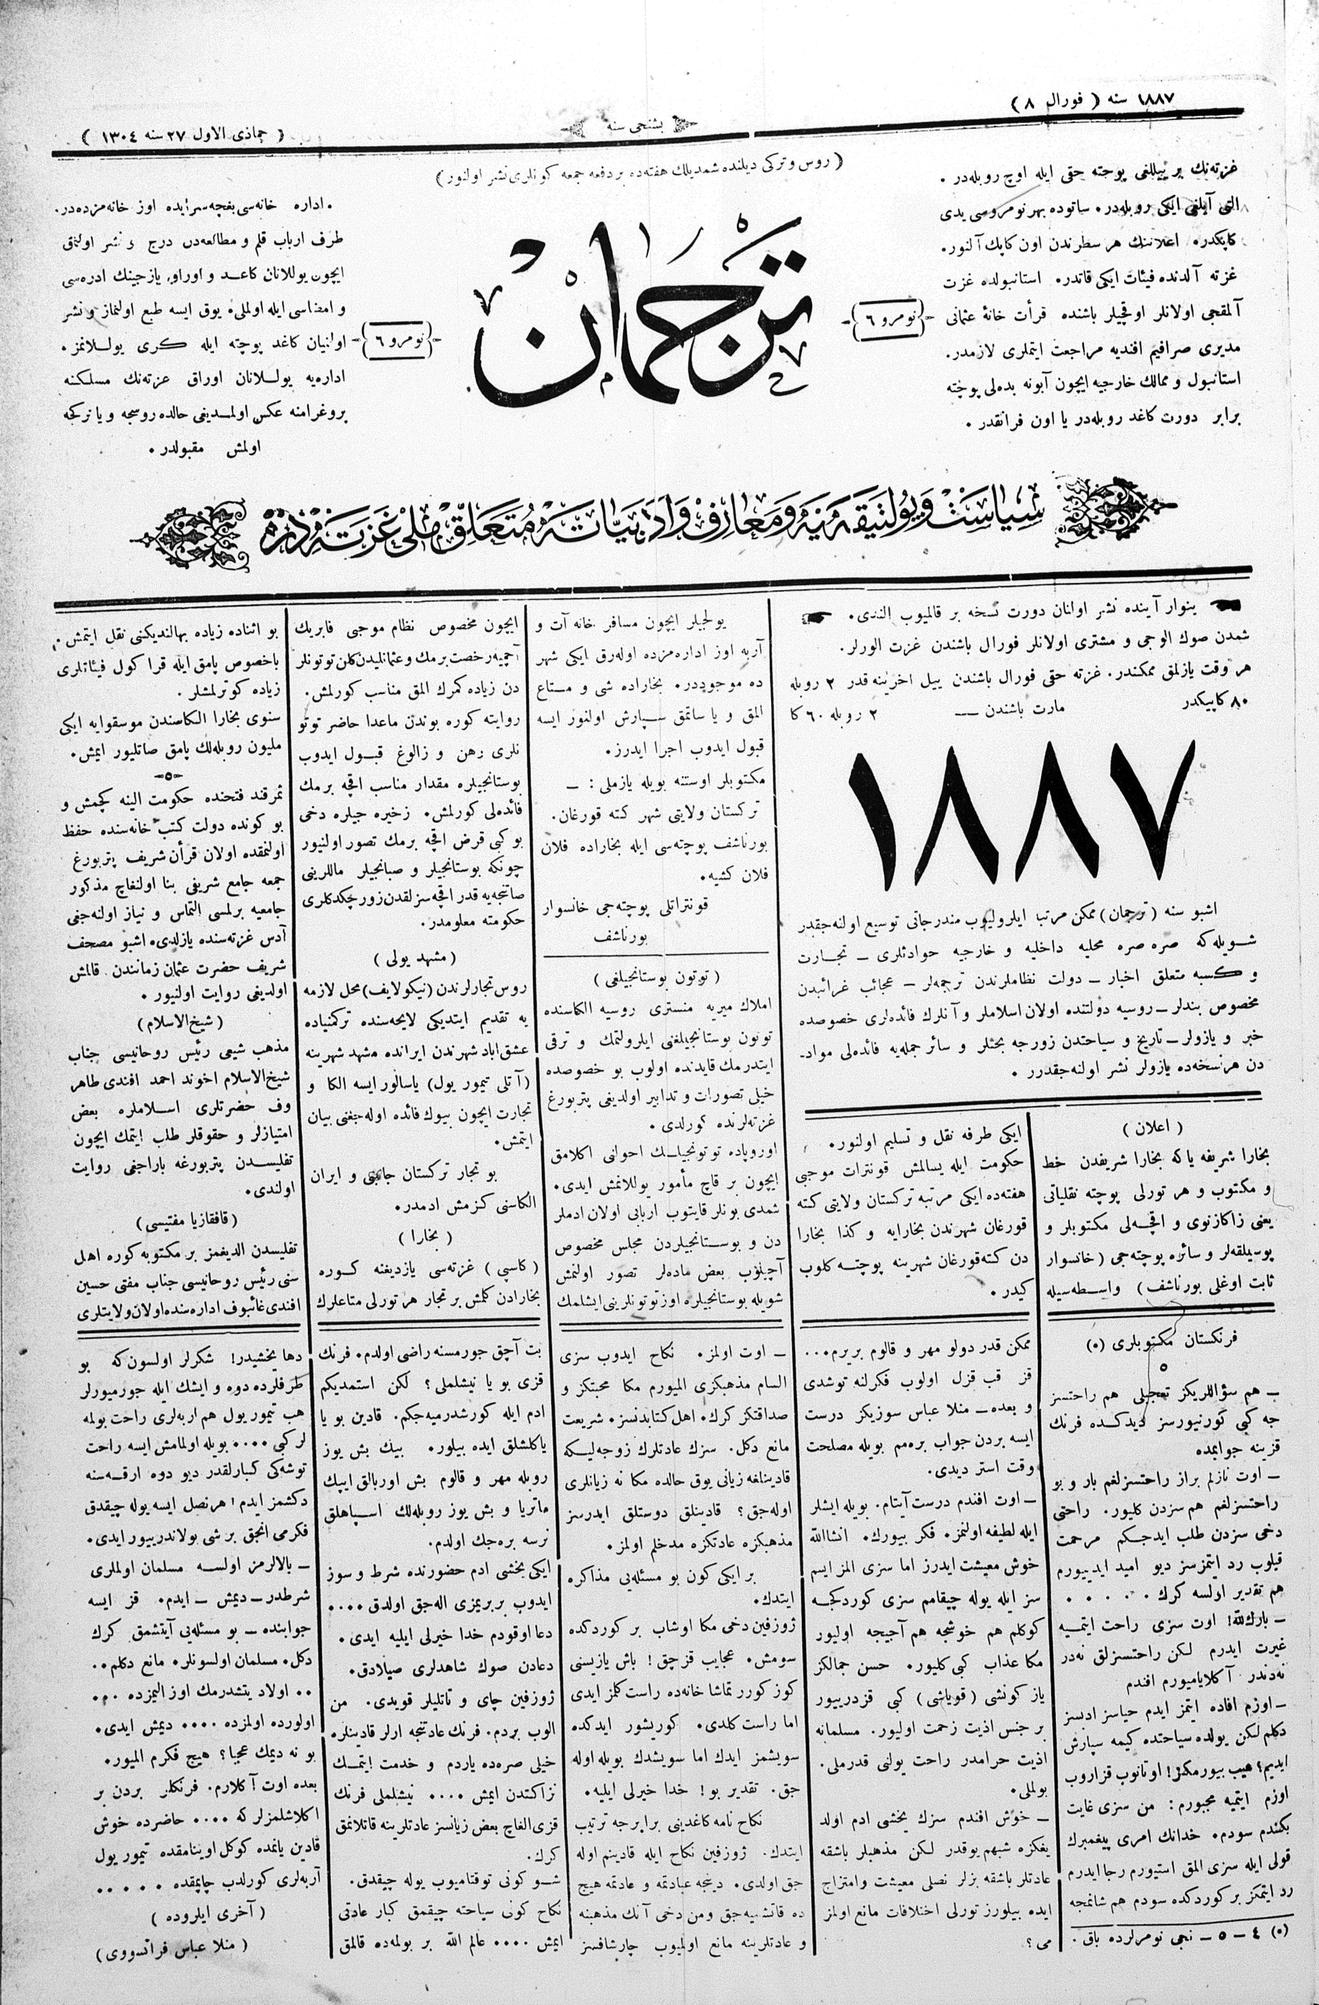 ١٨٨٧ سنه ( فورال ٨ )
بشنجی سنه
( جماذی الاول ٢٧ سنه ١٣٠٤ )
( روس و ترکی دیلنده شمدیلك هفته‌ده بر دفعه جمعه کونلری نشر اولنور )
غزته‌نك بر ییللغی پوچته حقی ایله اوچ روبله‌در .
التی آیلغی ایکی روبله‌در. ساتوده بهر نومروسی یدی
کاپکدر. اعلاننك هر سطرندن اون کاپك آلنور.
غزته آلدنده فیئات ایکی قاتدر. استانبولده غزت
آلمقجی اولانلر اوقجیلر باشنده قرأت خانۀ عثمانی
مدیری صرافیم افندیه مراجعت ایتملری لازمدر.
استانبول و ممالك خارجیه ایچون آبونه بده‌لی پوچته
برابر دورت کاغد روبله‌در یا اون فرانقدر .
نومرو ٦
ترجمان
نومرو ٦
. اداره خانه‌سی بغچه‌سرایده اوز خانه‌مزده‌در.
طرف ارباب قلم و مطالعه‌دن درج و نشر اولنمق
ایچون یوللانان کاغد و اوراق، یازجینك ادره‌سی
و امضاسی ایله اولملی. یوق ایسه طبع اولنماز و نشر
اولنیان کاغد پوچته ایله کری یوللانمز.
اداره‌یه یوللانان اوراق عزته‌نك مسلکنه
پروغرامنه عکس اولمدیغی حالده روسجه و یا ترکجه
اولمش مقبولدر .
سیاست و پولتیقه‌یه و معارف و ادبیاته متعلق ملی غزته‌در
ینوار آینده نشر اولنان دورت نسخه بر قالمیوب الندی.
شمدن صوك الوجی و مشتری اولانلر فورال باشندن غزت الورلر.
هر وقت یازلمق ممکندر. غزته حقی فورال باشندن ییل اخرینه قدر ٢ روبله
٨٠ کاپیکدر مارت باشندن — ٢ روبله ٦٠ کا
١٨٨٧
اشبو سنه ( ترجمان ) ممکن مرتبا ایلرولیوب مندرجاتی توسیع اولنه‌جقدر
شویله‌که صره صره محلیه داخلیه و خارجیه حوادثلری — تجارت
و کسبه متعلق اخبار — دولت نظاملرندن ترجمه‌لر — عجائب غرائبدن
مخصوص بندلر — روسیه دولتنده اولان اسلاملر و آنلرك فائده‌لری خصوصده
خبر و یازولر — تاریخ و سیاحتدن زورجه بحثلر و سائر جمله‌یه فائده‌لی مواد-
دن هر نسخه‌ده یازولر نشر اولنه‌جقدرر .
( اعلان )
بخارا شریفه یاکه بخارا شریفدن خط
و مکتوب و هر تورلی پوچته نقلیاتی
یعنی زاکازنوی و اقچه‌لی مکتوبلر و
پوسیلقه‌لر و سائره پوچته‌جی ( خانسوار
ثابت اوغلی بورناشف ) واسطه‌سیله
ایکی طرفه نقل و تسلیم اولنور.
حکومت ایله یسالمش قونترات موجبی
هفته‌ده ایکی مرتبه ترکستان ولایتی کته
قورغان شهرندن بخارایه و کذا بخارا
دن کته‌قورغان شهرینه پوچته کلوب
کیدر .
یولجیلر ایچون مسافر خانه آت و
آربه اوز اداره‌مزده اوله‌رق ایکی شهر
ده موجوددر. بخاراده شی و متاع
المق و یا ساتمق سپارش اولنور ایسه
قبول ایدوب اجرا ایدرز.
مکتوبلر اوستنه بویله یازملی : —
ترکستان ولایتی شهر کته قورغان.
بورناشف پوچته‌سی ایله بخاراده فلان
فلان کشیه.
قونتراتلی پوچته‌جی خانسوار
بورناشف
( توتون بوستانجیلغی )
املاك میریه منستری روسیه الکاسنده
توتون بوستانجیلغنی ایلرولتمك و ترقی
ایتدرمك قایدنده اولوب بو خصوصده
خیلی تصورات و تدابیر اولدیغی پتربورغ
غزته‌لرنده کورلدی .
اوروپاده توتونجیلك احوالنی اکلامق
ایچون بر قاچ مأمور یوللانمش ایدی.
شمدی بونلر قایتوب اربابی اولان ادملر
دن و بوستانجیلردن مجلس مخصوص
آچیلوب بعض ماده‌لر تصور اولنمش
شویله بوستانجیلره اوز توتونلرینی ایشلمك
ایچون مخصوص نظام موجی فابریك
آچمیه رخصت برمك و عثمانلیدن کلن توتونلر
دن زیاده کمرك المق مناسب کورلمش.
روایته کوره بوندن ماعدا حاضر توتو
نلری رهن و زالوغ قبول ایدوب
بوستانجیلره مقدار مناسب اقچه برمك
فائده‌لی کورلمش. زخیره جیلره دخی
بو کبی قرض اقچه برمك تصور اولنیور
چونکه بوستانجیلر و صبانجیلر ماللرینی
صاتنجیه قدر اقچه سزلقدن زور چکدکلری
حکومته معلومدر.
( مشهد یولی )
روس تجارلرندن ( نیکولایف ) محل لازمه
یه تقدیم ایتدیکی لایحه‌سنده ترکمنیاده
عشق‌اباد شهرندن ایرانده مشهد شهرینه
( آتلی تیمور یول ) یاسالور ایسه الکا و
تجارت ایچون بیوك فائده اوله‌جغنی بیان
ایتمش.
بو تجار ترکستان جانبنی و ایران
الکاسنی کزمش ادمدر.
( بخارا )
( کاسپی ) غزته‌سی یازدیغنه کوره
بخارادن کلمش بر تجار هر تورلی متاعلرك
بو اثناده زیاده بهالندیکنی نقل ایتمش.
باخصوص پامق ایله قرا کول فیئاتلری
زیاده کوترلمشلر .
سنوی بخارا الکاسندن موسقوایه ایکی
ملیون روبله‌لك پامق صاتلیور ایمش.
ثمرقند فتحنده حکومت الینه کچمش و
بو کونده دولت کتب خانه‌سنده حفظ
اولنمقده اولان قرأن شریف پتربورغ
جمعه جامع شریفی بنا اولنغاچ مذکور
جامعیه برلمسی التماس و نیاز اوله‌جغی
آدس غزته‌سنده یازلدی. اشبو مصحف
شریف حضرت عثمان زمانندن قالمش
اولدیغی روایت اولنیور .
( شیخ الاسلام )
مذهب شیعی رئیس روحانیسی جناب
شیخ الاسلام اخوند احمد افندی طاهر
وف حضرتلری اسلاملره بعض
امتیازلر و حقوقلر طلب ایتمك ایچون
تفلیسدن پتربورغه باراجغی روایت
اولندی.
( قافقازیا مفتیسی )
تفلیسدن الدیغمز بر مکتوبه کوره اهل
سنی رئیس روحانیسی جناب مفتی حسین
افندی غائبوف اداره‌سنده اولان ولایتلری
فرنکستان مکتوبلری (٥)
٥
— هم سؤاللریکز تعجیلی هم راحتسز
جه کبی کورنیورسز دیدکده فرنك
قزینه جوابمده
— اوت نازلم براز راحتسزلغم بار و بو
راحتسزلغم هم سزدن کلیور. راحتی
دخی سزدن طلب ایدجکم مرحمت
قیلوب رد ایتمزسز دیو امید ایدییورم
هم تقدیر اولسه کرك . . . . .
— بارك‌الله! اوت سزی راحت ایتمیه
غیرت ایدرم لکن راحتسزلق نه‌در
نه‌دندر آکلایامیورم افندم
— اوزم افاده ایتمز ایدم حیاسز ادسز
دکلم لکن یولده سیاحتده کیمه سپارش
ایدیم؟ هیب بیورمکز! اوتانوب قزاروب
اوزم ایتمیه مجبورم: من سزی غایت
بکندم سودم. خدانك امری پیغمبرك
قولی ایله سزی المق استیورم رجا ایدرم
رد ایتمکز بر کوردکده سودم هم شانمجه
(٥) ٤ — ٥ — نجی نومرلرده باق .
ممکن قدر دولو مهر و قالوم بریرم...
قز قب قزل اولوب فکرلنه توشدی
و بعده — منلا عباس سوزیکز درست
ایسه بردن جواب بره‌مم بویله مصلحت
وقت استر دیدی.
— اوت افندم درست آیتام. بویله ایشلر
ایله لطیفه اولنمز. فکر بیورك. انشاالله
خوش معیشت ایدرز اما سزی المز ایسم
سز ایله یوله چیقامم سزی کوردکجه
کوکلم هم خوشجه هم آجیجه اولیور
مکا عذاب کبی کلیور. حسن جمالکز
یاز کونشی ( قویاشی ) کبی قزدریبور
بر جنس اذیت زحمت اولیور. مسلمانه
اذیت حرامدر راحت یولنی قدرملی.
بولملی.
— خوش افندم سزك یخشی ادم اولد
یغکزه شبهم یوقدر لکن مذهبلر باشقه
عادتلر باشقه بزلر نصلی معیشت وامتزاج
ایده بیلورز تورلی اختلافات مانع اولمز
می؟
— اوت اولمز. نکاح ایدوب سزی
السام مذهبکزی المیورم مکا محبتکز و
صداقتکز کرك. اهل کتابدنسز. شریعت
مانع دکل. سزك عادتلرك زوجه‌لیکه
قادینلغه زیانی یوق حالده مکا نه زیانلری
اوله‌جق؟ قادینلق دوستلق ایدرسز
مذهبکزه عادتکزه مدخلم اولمز.
بر ایکی کون بو مسئله‌یی مذاکره
ایتدك.
ژوزفین دخی مکا اوشاب بر کوردکده
سومش. عجایب قز چق! باش یازیسنی
کوز کورر تماشا خانه‌ده راست کلمز ایدی
اما راست کلدی. کوریشور ایدکده
سویشمز ایدك اما سویشدك بویله اوله
جق. تقدیر بو! خدا خیرلی ایلیه.
نکاح نامه کاغدینی برابرجه ترتیب
ایتدك. ژوزفین نکاح ایله قادینم اوله
جق اولدی. دینجه عبادتمه و عادتمه هیچ
ده قاتشمیه‌جق ومن دخی آنك مذهبنه
و عادتلرینه مانع اولمیوب چارشافسز
بت آچق جورمسنه راضی اولدم. فرنك
قزی بو یا نیشلملی؟ لکن استمدیکم
ادم ایله کورشدرمیه‌جکم. قادین بو یا
یاکلشلق ایده بیلور. بیك بش یوز
روبله مهر و قالوم بش اوربالق ایپك
ماتریا و بش یوز روبله‌لك اسپاهلق
نرسه بره‌جك اولدم.
ایکی یخشی ادم حضورنده شرط و سوز
ایدوب بربریزی اله‌جق اولدق ....
دعا اوقودم خدا خیرلی ایلیه ایدی.
دعادن صوك شاهدلری صیلادق.
ژوزفین چای و تاتلیلر قویدی. من
الوب بردم. فرنك عادتنجه ارلر قادینلره
خیلی صره‌ده یاردم و خدمت ایتمك
نزاکتدن ایمش .... نیشلملی فرنك
قزی الغاچ بعض زیانسز عادتلرینه قاتلانمق
کرك.
شو کونی توقتامیوب یوله چیقدق.
نکاح کونی سیاحته چیقمق کبار عادتی
ایمش .... عالم الله بر بولمه‌ده قالمق
دها یخشیدر! شکرلر اولسون‌که بو
طرفلرده دوه و ایشك ایله جورمیورلر
هب تیمور یول هم اربه‌لری راحت بولمه
لر کبی .... بویله اولمامش ایسه راحت
توشه‌کی کبارلقدر دیو دوه ارقه‌سنه
دکشمز ایدم! هرنصل ایسه یوله چیقدق
فکرمی انجق بر شی بولاندرییور ایدی.
— بالالرمز اولسه مسلمان اولملری
شرطدر — دیمش — ایدم. قز ایسه
جوابنده — بو مسئله‌یی آیتشمق کرك
دکل. مسلمان اولسونلر. مانع دکلم..
.. اولاد یتشدرمك اوز المزده ...
اولورده اولمزده .... دیمش ایدی.
بو نه دیمك عجبا؟ هیچ فکرم المیور.
بعده اوت آکلارم. فرنکلر بردن بر
اکلاشلمزلر که .... حاضرده خوش
قادین یانمده کوکل اویناماقده تیمور یول
آربه‌لری کورلدب چاپمقده .....
( آخری ایلروده )
( منلا عباس فرانسووی )